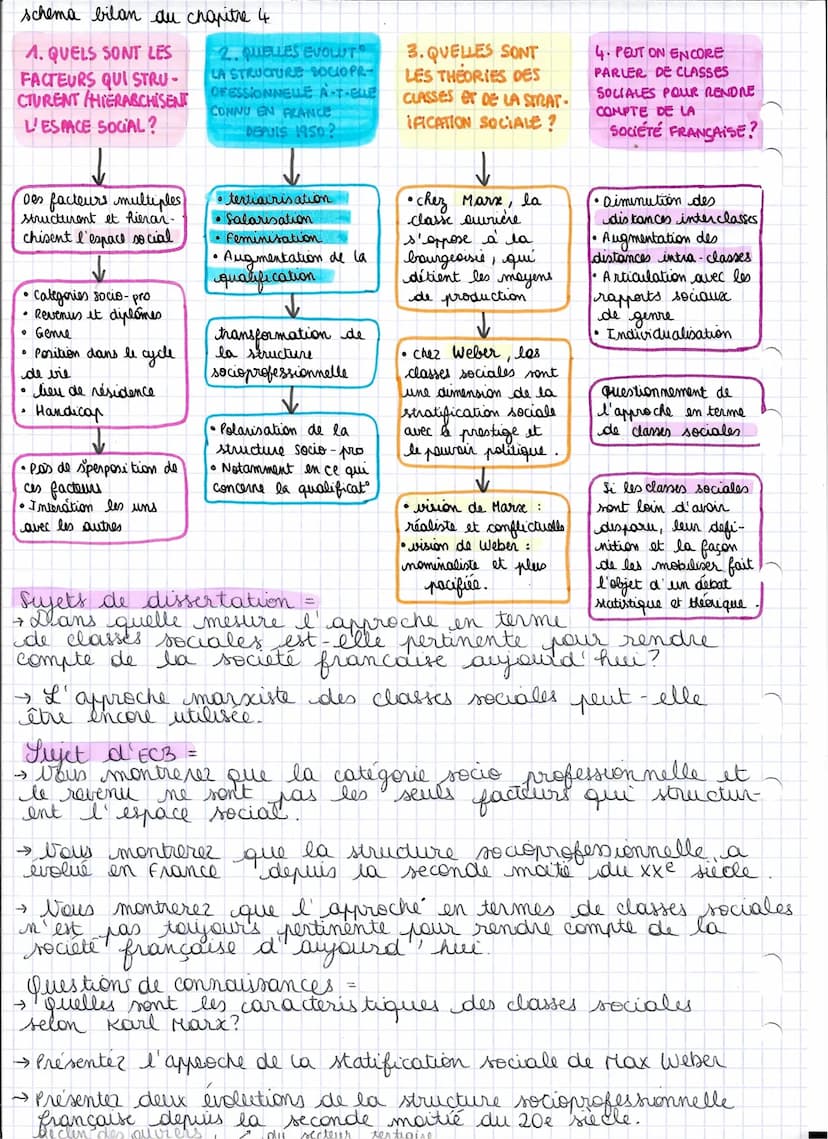 schema bilan du chapitre 4
1. QUELS SONT LES
FACTEURS QUI STRU-
CTURENT /HIERARCHISENT
L'ESPACE SOCIAL ?
Des facteurs multiples
structurent et hierar-
chisent l'espace social
• Catégories socio-pro
• Revenus et diplômes
• Genre
• Position dans le cycle
de vie
• lieu de résidence
• Handicap
• pas de sperposition de
ces facteurs
• Interation les uns
avec les autres
2. QUELLES EVOLUT°
LA STRUCTURE SOCIOPR-
OFESSIONNELLE A-T-ELLE
CONNU EN FRANCE
DEPUIS 1950 ?
• tertiairisation
• Salarisation
• Feminisation
• Augmentation de la
qualification
transformation de
la structure
socioprofessionnelle
• Polarisation de la
structure socio-pro
• Notamment en ce qui
concerne la qualificat°
3. QUELLES SONT
LES THÉORIES DES
CLASSES ET DE LA STRAT-
IFICATION SOCIALE ?
• chez Marx, la
classe ouvrière
s'oppose à la
bourgeoisie, qui
détient les moyens
de production
• chez Weber, les
classes sociales sont
une dimension de la
stratification sociale
avec le prestige et
le pouvoir politique.
• vision de Marx :
réaliste et conflictuelle
• vision de Weber :
nominaliste et plus
pacifiée.
4. PEUT ON ENCORE
PARLER DE CLASSES
SOCIALES POUR RENDRE
COMPTE DE LA
SOCIÉTÉ FRANÇAISE ?
• Diminution des
distances interclasses
• Augmentation des
distances intra-classes
• Articulation avec les
rapports sociaux
de genre
• Individualisation
Questionnement de
l'approche en terme
de classes sociales
Si les classes sociales
sont loin d'avoir
disparu, leur défi-
nition et la façon
de les mobiliser fait
l'objet d'un débat
statistique et théorique.
Sujets de dissertation =
→ Dans quelle mesure l'approche en terme
de classes sociales est-elle pertinente pour rendre
compte de la société francaise aujourd'hui ?
→ L'approche marxiste des classes sociales peut-elle
être encore utilisée.
Sujet d'EC3 =
→ Vous montrerez que la catégorie socio professionnelle et
le revenu ne sont pas les seuls facteurs qui structur-
ent l'espace social.
→ Vous montrerez que la structure socioprofessionnelle a
évolué en France depuis la seconde moité du XXe siècle.
→ Vous montrerez que l'approche en termes de classes sociales
n'est pas toujours pertinente pour rendre compte de la
société française d'aujourd'hui.
Questions de connaissances =
→ Quelles sont les caracteristiques des classes sociales
selon Karl Marx ?
→ Présentez l'approche de la statification sociale de Max Weber
→ Présentez deux évolutions de la structure socioprofessionnelle
française depuis la seconde moitié du 20e siècle.
déclin des ouvriers, ↗ du secteur tertiaire